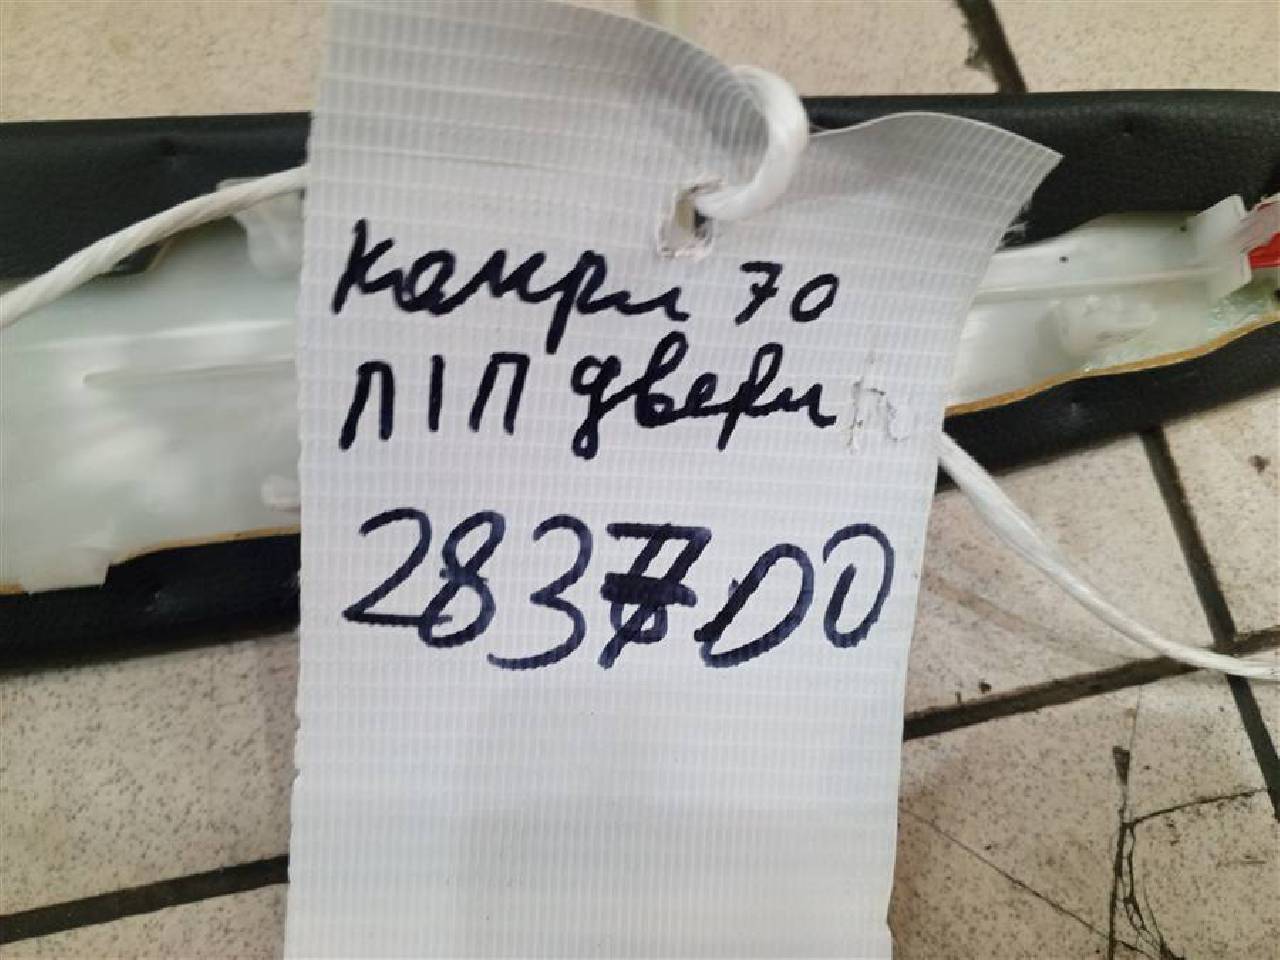 камри 70
П/П двери
283700